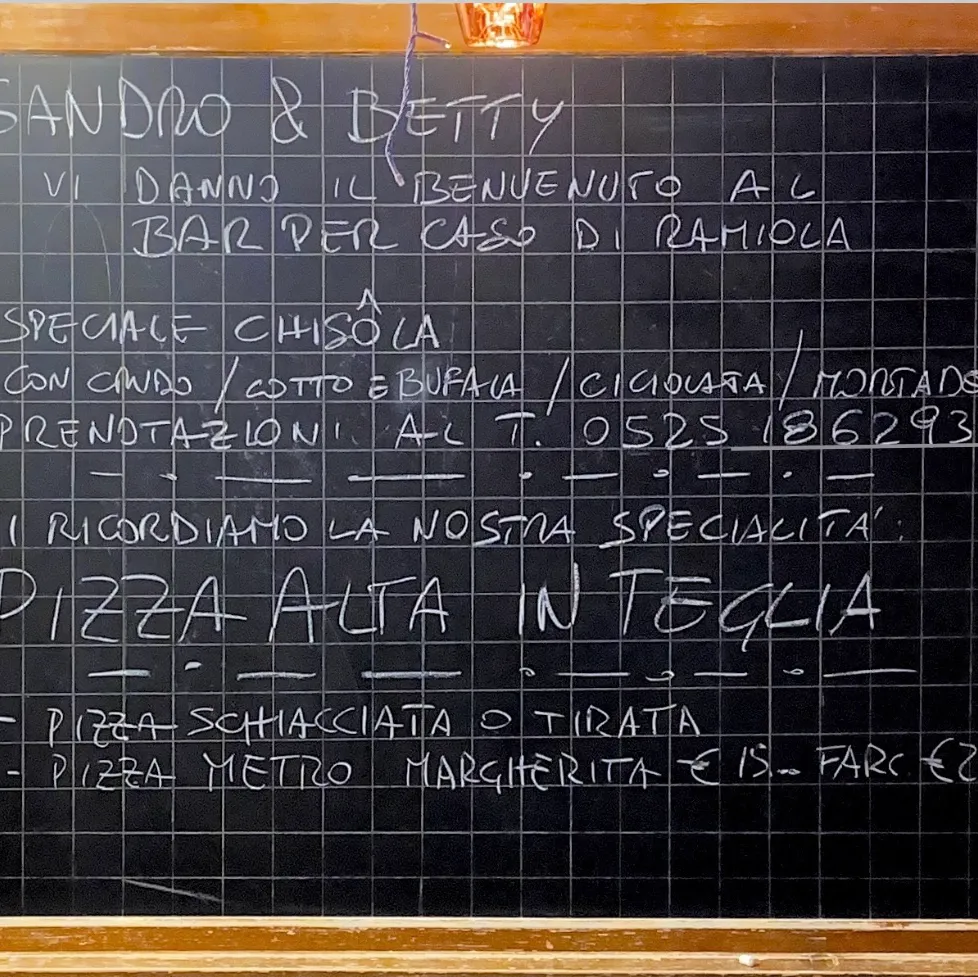 SANDRO & BETTY
VI DANNO IL BENVENUTO AL
BAR PER CASO DI RAMIOLA
SPECIALE CHISÔLA
CON CRUDO / COTTO E BUFALA / CICIOLATA / MORTADE
PRENOTAZIONI AL T. 0525 186293
I RICORDIAMO LA NOSTRA SPECIALITA':
PIZZA ALTA IN TEGLIA
- PIZZA SCHIACCIATA O TIRATA
- PIZZA METRO MARGHERITA € 15.. FARC €2